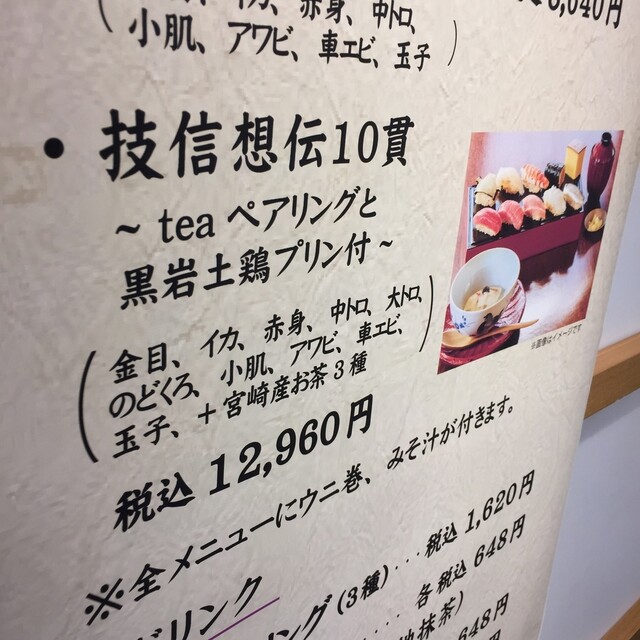 イカ、赤身、中トロ、
小肌、アワビ、車エビ、玉子
・技信想伝10貫
~ tea ペアリングと
黒岩土鶏プリン付 ~
(金目、イカ、赤身、中トロ、大トロ、
のどくろ、小肌、アワビ、車エビ、
玉子、+宮崎産お茶3種)
税込 12,960円
※画像はイメージです
※全メニューにウニ巻、みそ汁が付きます。
ドリンク
(3種)・・・税込 1,620円
各税込 648円
抹茶)
648円